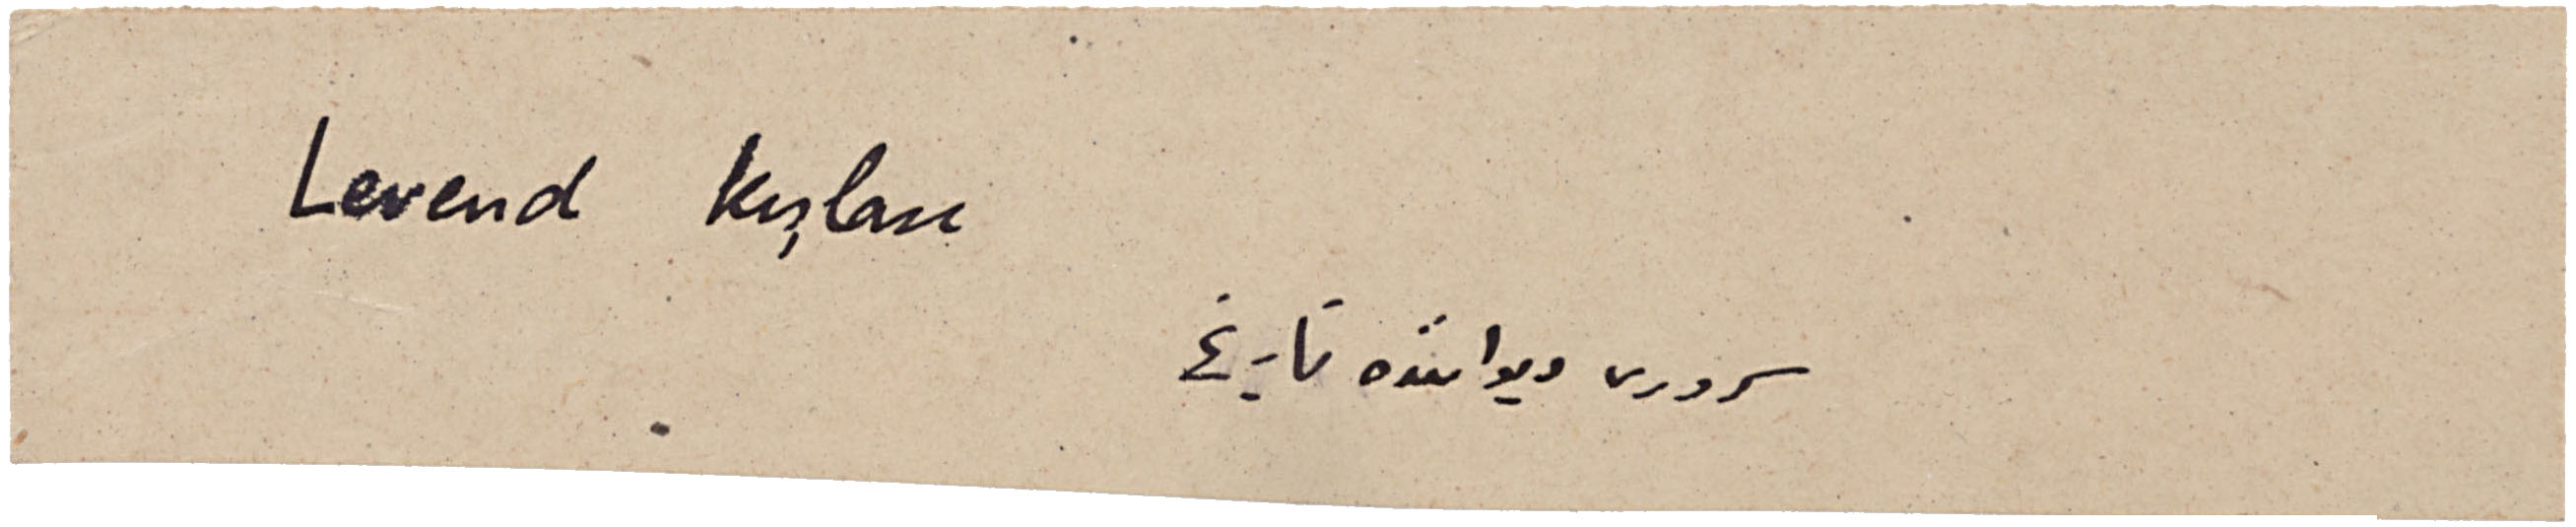 Levend kışlası
سروری دیواننده تاریخ